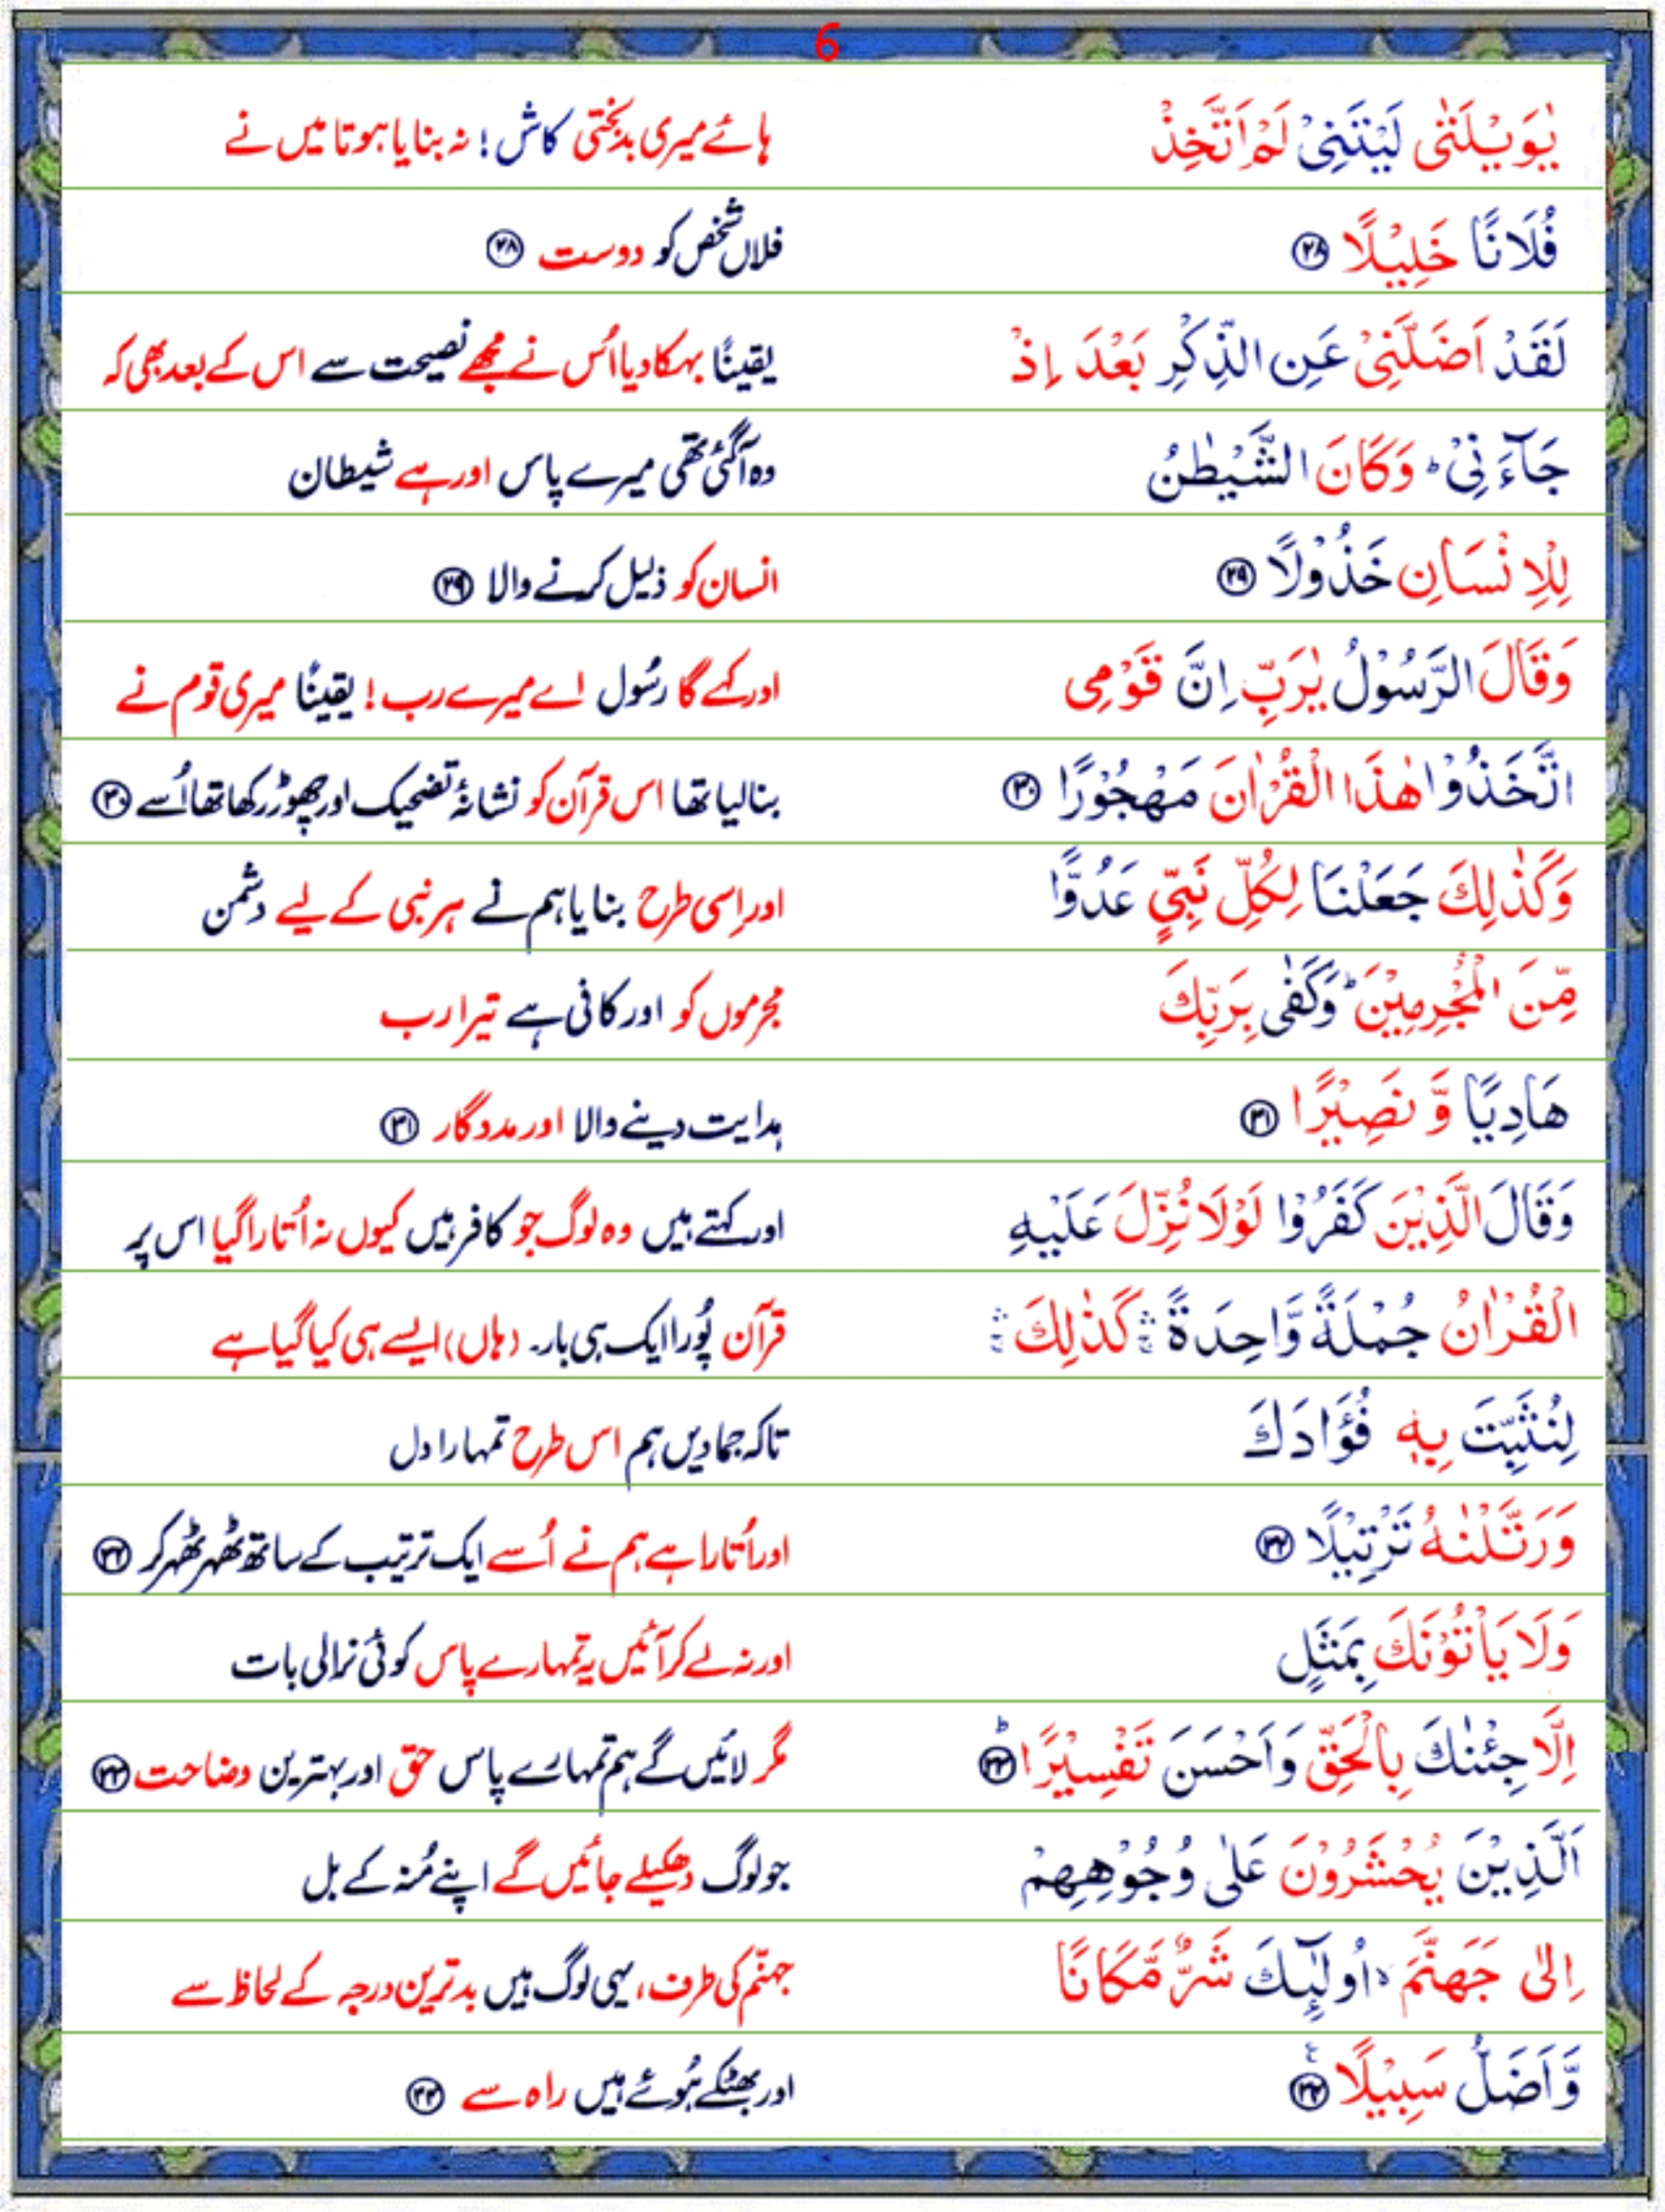 6
يٰوَيْلَتٰى لَيْتَنِيْ لَمْ اَتَّخِذْ ہائے میری بدبختی کاش! نہ بنایا ہوتا میں نے
فُلَانًا خَلِيْلًا ۲۸ فلاں شخص کو دوست ۲۸
لَقَدْ اَضَلَّنِيْ عَنِ الذِّكْرِ بَعْدَ اِذْ یقیناً بہکا دیا اُس نے مجھے نصیحت سے اس کے بعد بھی کہ
جَآءَنِيْ ؕ وَكَانَ الشَّيْطٰنُ وہ آگئی تھی میرے پاس اور ہے شیطان
لِلْاِنْسَانِ خَذُوْلًا ۲۹ انسان کو ذلیل کرنے والا ۲۹
وَقَالَ الرَّسُوْلُ يٰرَبِّ اِنَّ قَوْمِي اور کہے گا رسُول اے میرے رب! یقیناً میری قوم نے
اتَّخَذُوْا هٰذَا الْقُرْاٰنَ مَهْجُوْرًا ۳۰ بنا لیا تھا اس قرآن کو نشانۂ تضحیک اور چھوڑ رکھا تھا اُسے ۳۰
وَكَذٰلِكَ جَعَلْنَا لِكُلِّ نَبِيٍّ عَدُوًّا اور اِسی طرح بنایا ہم نے ہر نبی کے لیے دشمن
مِّنَ الْمُجْرِمِيْنَ ؕ وَكَفٰى بِرَبِّكَ مجرموں کو اور کافی ہے تیرا رب
هَادِيًا وَّ نَصِيْرًا ۳۱ ہدایت دینے والا اور مددگار ۳۱
وَقَالَ الَّذِيْنَ كَفَرُوْا لَوْلَا نُزِّلَ عَلَيْهِ اور کہتے ہیں وہ لوگ جو کافر ہیں کیوں نہ اُتارا گیا اس پر
الْقُرْاٰنُ جُمْلَةً وَّاحِدَةً ۛۚ كَذٰلِكَ ۛۚ قرآن پُورا ایک ہی بار۔ (ہاں) ایسے ہی کیا گیا ہے
لِنُثَبِّتَ بِهٖ فُؤَادَكَ تاکہ جمادیں ہم اس طرح تمہارا دل
وَرَتَّلْنٰهُ تَرْتِيْلًا ۳۲ اور اُتارا ہے ہم نے اُسے ایک ترتیب کے ساتھ ٹھہر ٹھہر کر ۳۲
وَلَا يَاْتُوْنَكَ بِمَثَلٍ اور نہ لے کر آئیں یہ تمہارے پاس کوئی نرالی بات
اِلَّا جِئْنٰكَ بِالْحَقِّ وَاَحْسَنَ تَفْسِيْرًا ؕ ۳۳ مگر لائیں گے ہم تمہارے پاس حق اور بہترین وضاحت ۳۳
اَلَّذِيْنَ يُحْشَرُوْنَ عَلٰى وُجُوْهِهِمْ جو لوگ دھکیلے جائیں گے اپنے مُنہ کے بل
اِلٰى جَهَنَّمَ ۙ اُولٰٓئِكَ شَرٌّ مَّكَانًا جہنّم کی طرف، یہی لوگ ہیں بدترین درجہ کے لحاظ سے
وَّاَضَلُّ سَبِيْلًا ۧ ۳۴ اور بھٹکے ہُوئے ہیں راہ سے ۳۴